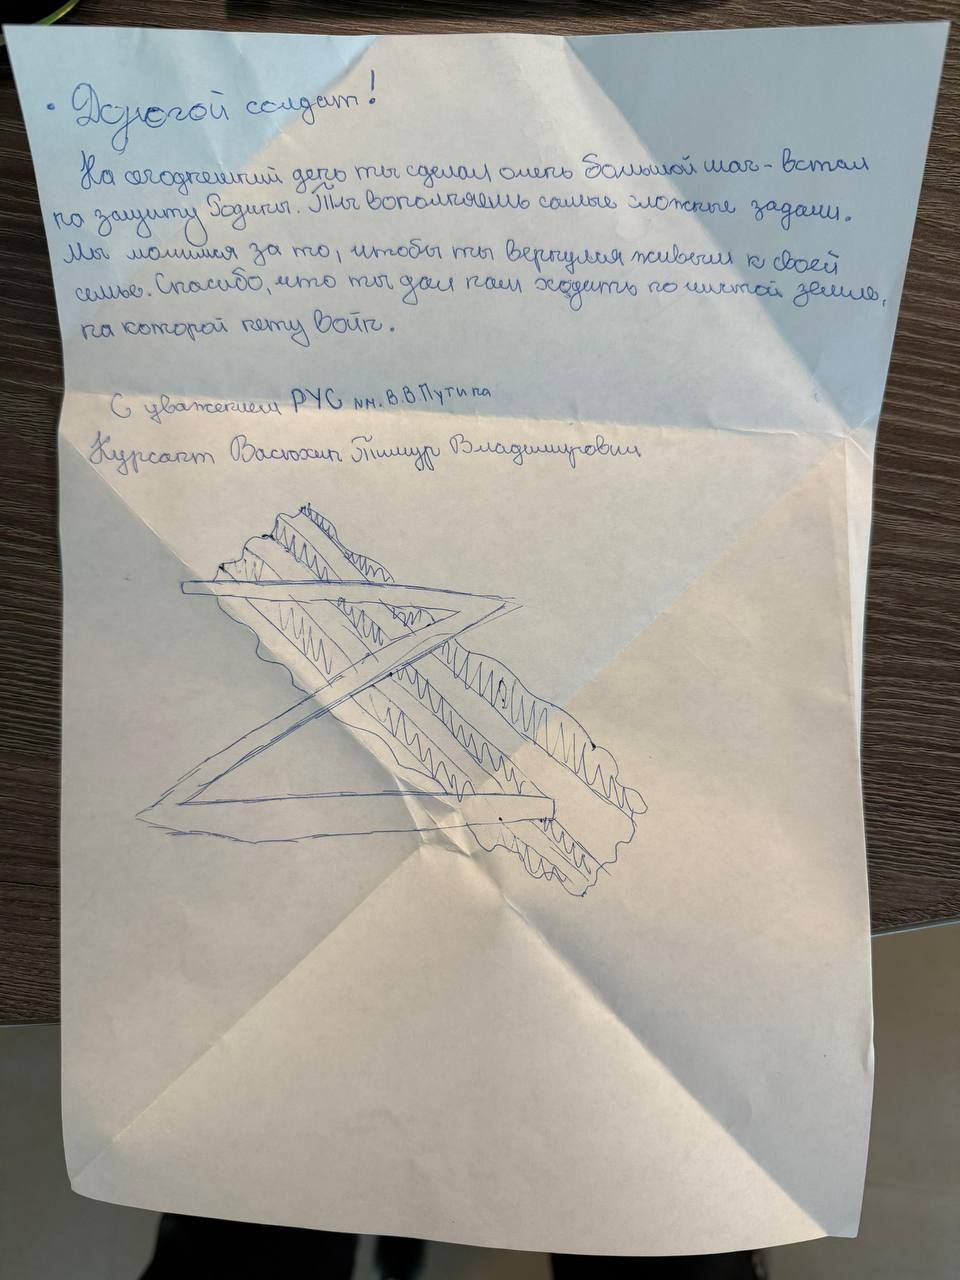 Дорогой солдат!
На сегоднешний день ты сделал очень большой шаг - встал
на защиту Родины. Ты вополняешь самые сложные задачи.
Мы молимся за то, чтобы ты вернулся живым к своей
семье. Спасибо, что ты дал нам ходить по чистой земле,
на которой нету войн.
С уважением РУС им. В.В Путина
Курсант Васюхин Тимур Владимирович